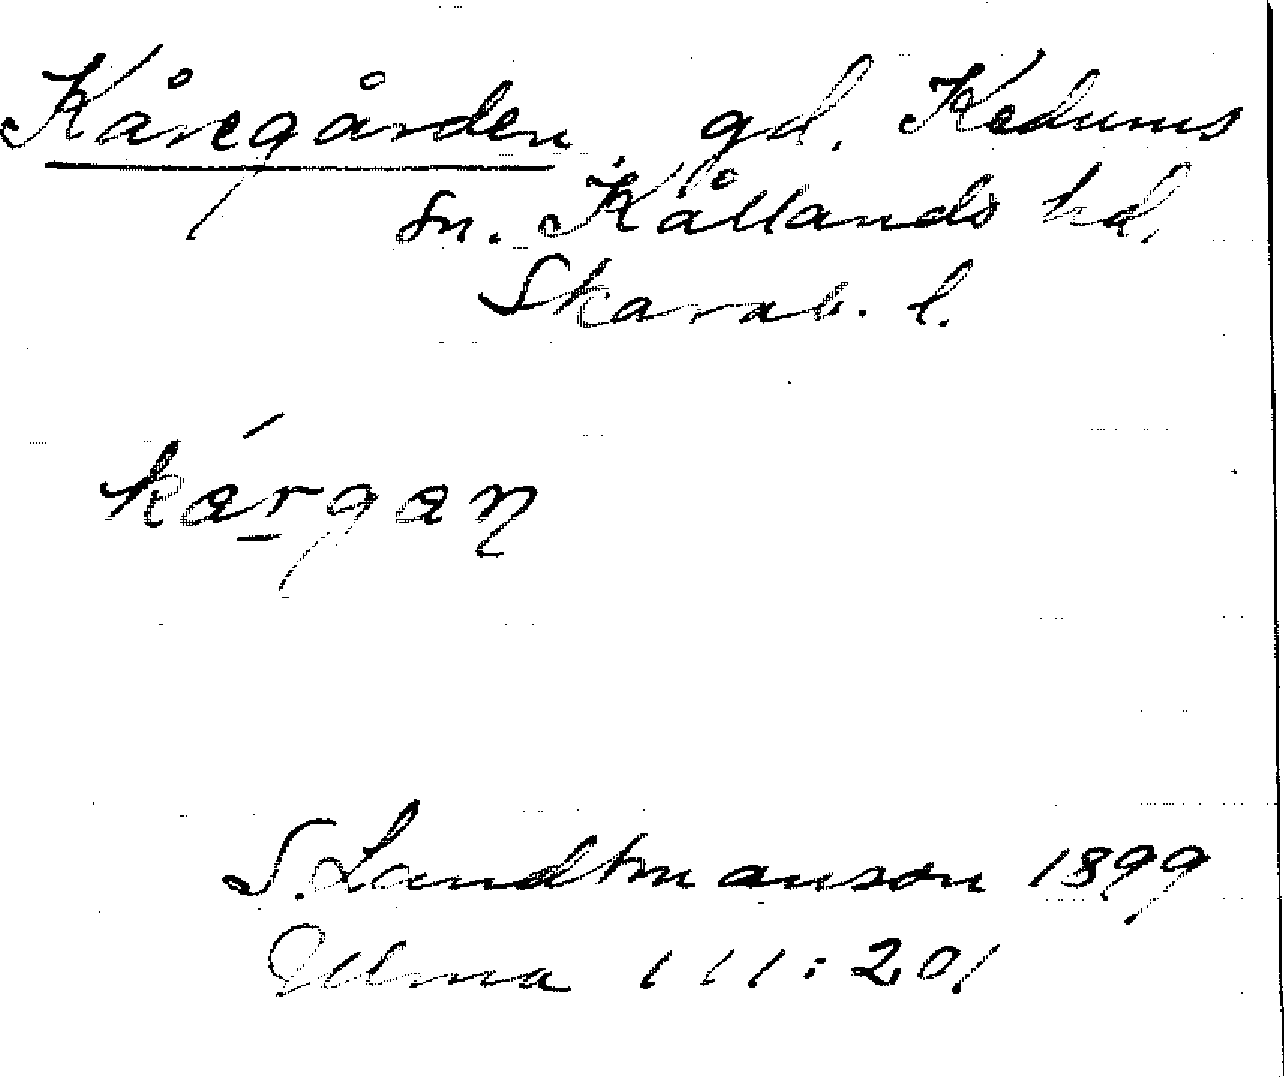 Kåregården gd. Kedums
sn. Kållands hd.
Skarab. l.
kárgan
S. Landtmanson 1899
Ulma 111:201